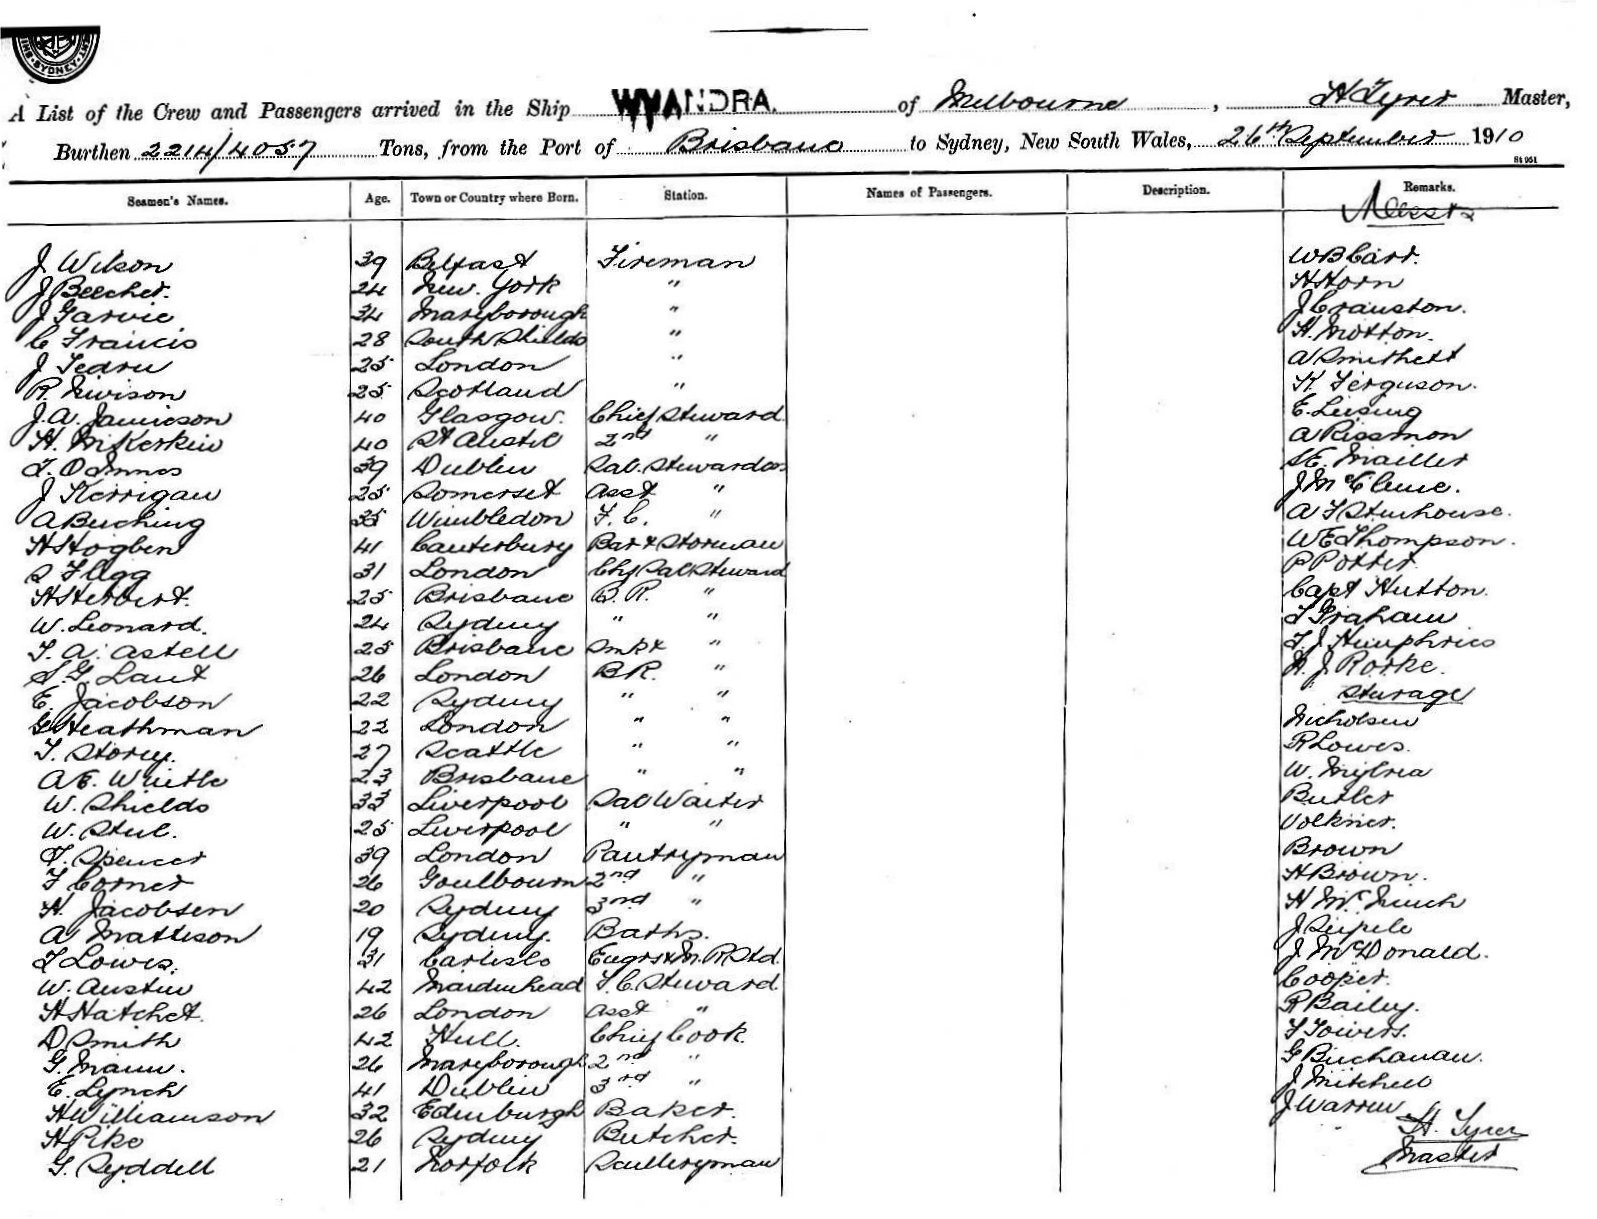 SYDNEY
A List of the Crew and Passengers arrived in the Ship WYANDRA. of Melbourne, H Tyrer Master,
Burthen 2214/4057 Tons, from the Port of Brisbane to Sydney, New South Wales, 26th September 1910
St 951
Seamen's Names. Age. Town or Country where Born. Station. Names of Passengers. Description. Remarks.
Messrs
J Wilson 39 Belfast Fireman W B Carr.
J Beecher. 24 New York " H Horn
J Garvie 34 Maryborough " J Cranston.
C Francis 28 South Shields " H. Motton.
J Tedru 25 London " A Smithett
R. Nivison 25 Scotland " K Ferguson.
J. A. Jamieson 40 Glasgow. Chief Steward E. Leising
H. McKerkin 40 St Austel 2nd " A Rissmon
T. O Innes 39 Dublin Sal. Stewardess S E. Mailler
J Kerrigan 25 Somerset Asst " J McClure.
A Buching 35 Wimbledon F. C. " A F Stenhouse.
H Hogben 41 Canterbury Bar & Storman W E Thompson.
S Flegg 31 London Chf Sal Steward P Potter
H Herbert. 25 Brisbane B. R. " Capt Hutton.
W. Leonard. 24 Sydney " " T Graham
T. A. Astell 25 Brisbane Smkr " F. J Humphries
S. G. Lant 26 London B R. " H. J Rorke.
E. Jacobson 22 Sydney " " Steerage
G Heathman 22 London " " Nicholson
T. Storey. 27 Seattle " " R Lowes.
A E. Wintle 23 Brisbane " " W. Mylrea
W. Shields 33 Liverpool Sal Waiter Butler
W. Steel. 25 Liverpool " " Volkner.
F. Spencer 39 London Pantryman Brown
F Corner 26 Goulbourn 2nd " H Brown.
H. Jacobsen 20 Sydney 3rd " H McNinch
A Mattison 19 Sydney. Baths. J Seipele
T Lowes. 31 Carlisle Engrs & M. R Std. J McDonald.
W. Austin 42 Maidenhead F. C. Steward Cooper.
H Hatchet. 26 London Asst " R Bailey.
D Smith 42 Hull. Chief Cook. F Towers.
G. Mann. 26 Maryborough 2nd " G Buchanan.
E. Lynch 41 Dublin 3rd " J Mitchell
H Williamson 32 Edinburgh Baker. J Warren
H Pike 26 Sydney Butcher. H. Tyrer
G. Syddell 21 Norfolk Sculleryman Master